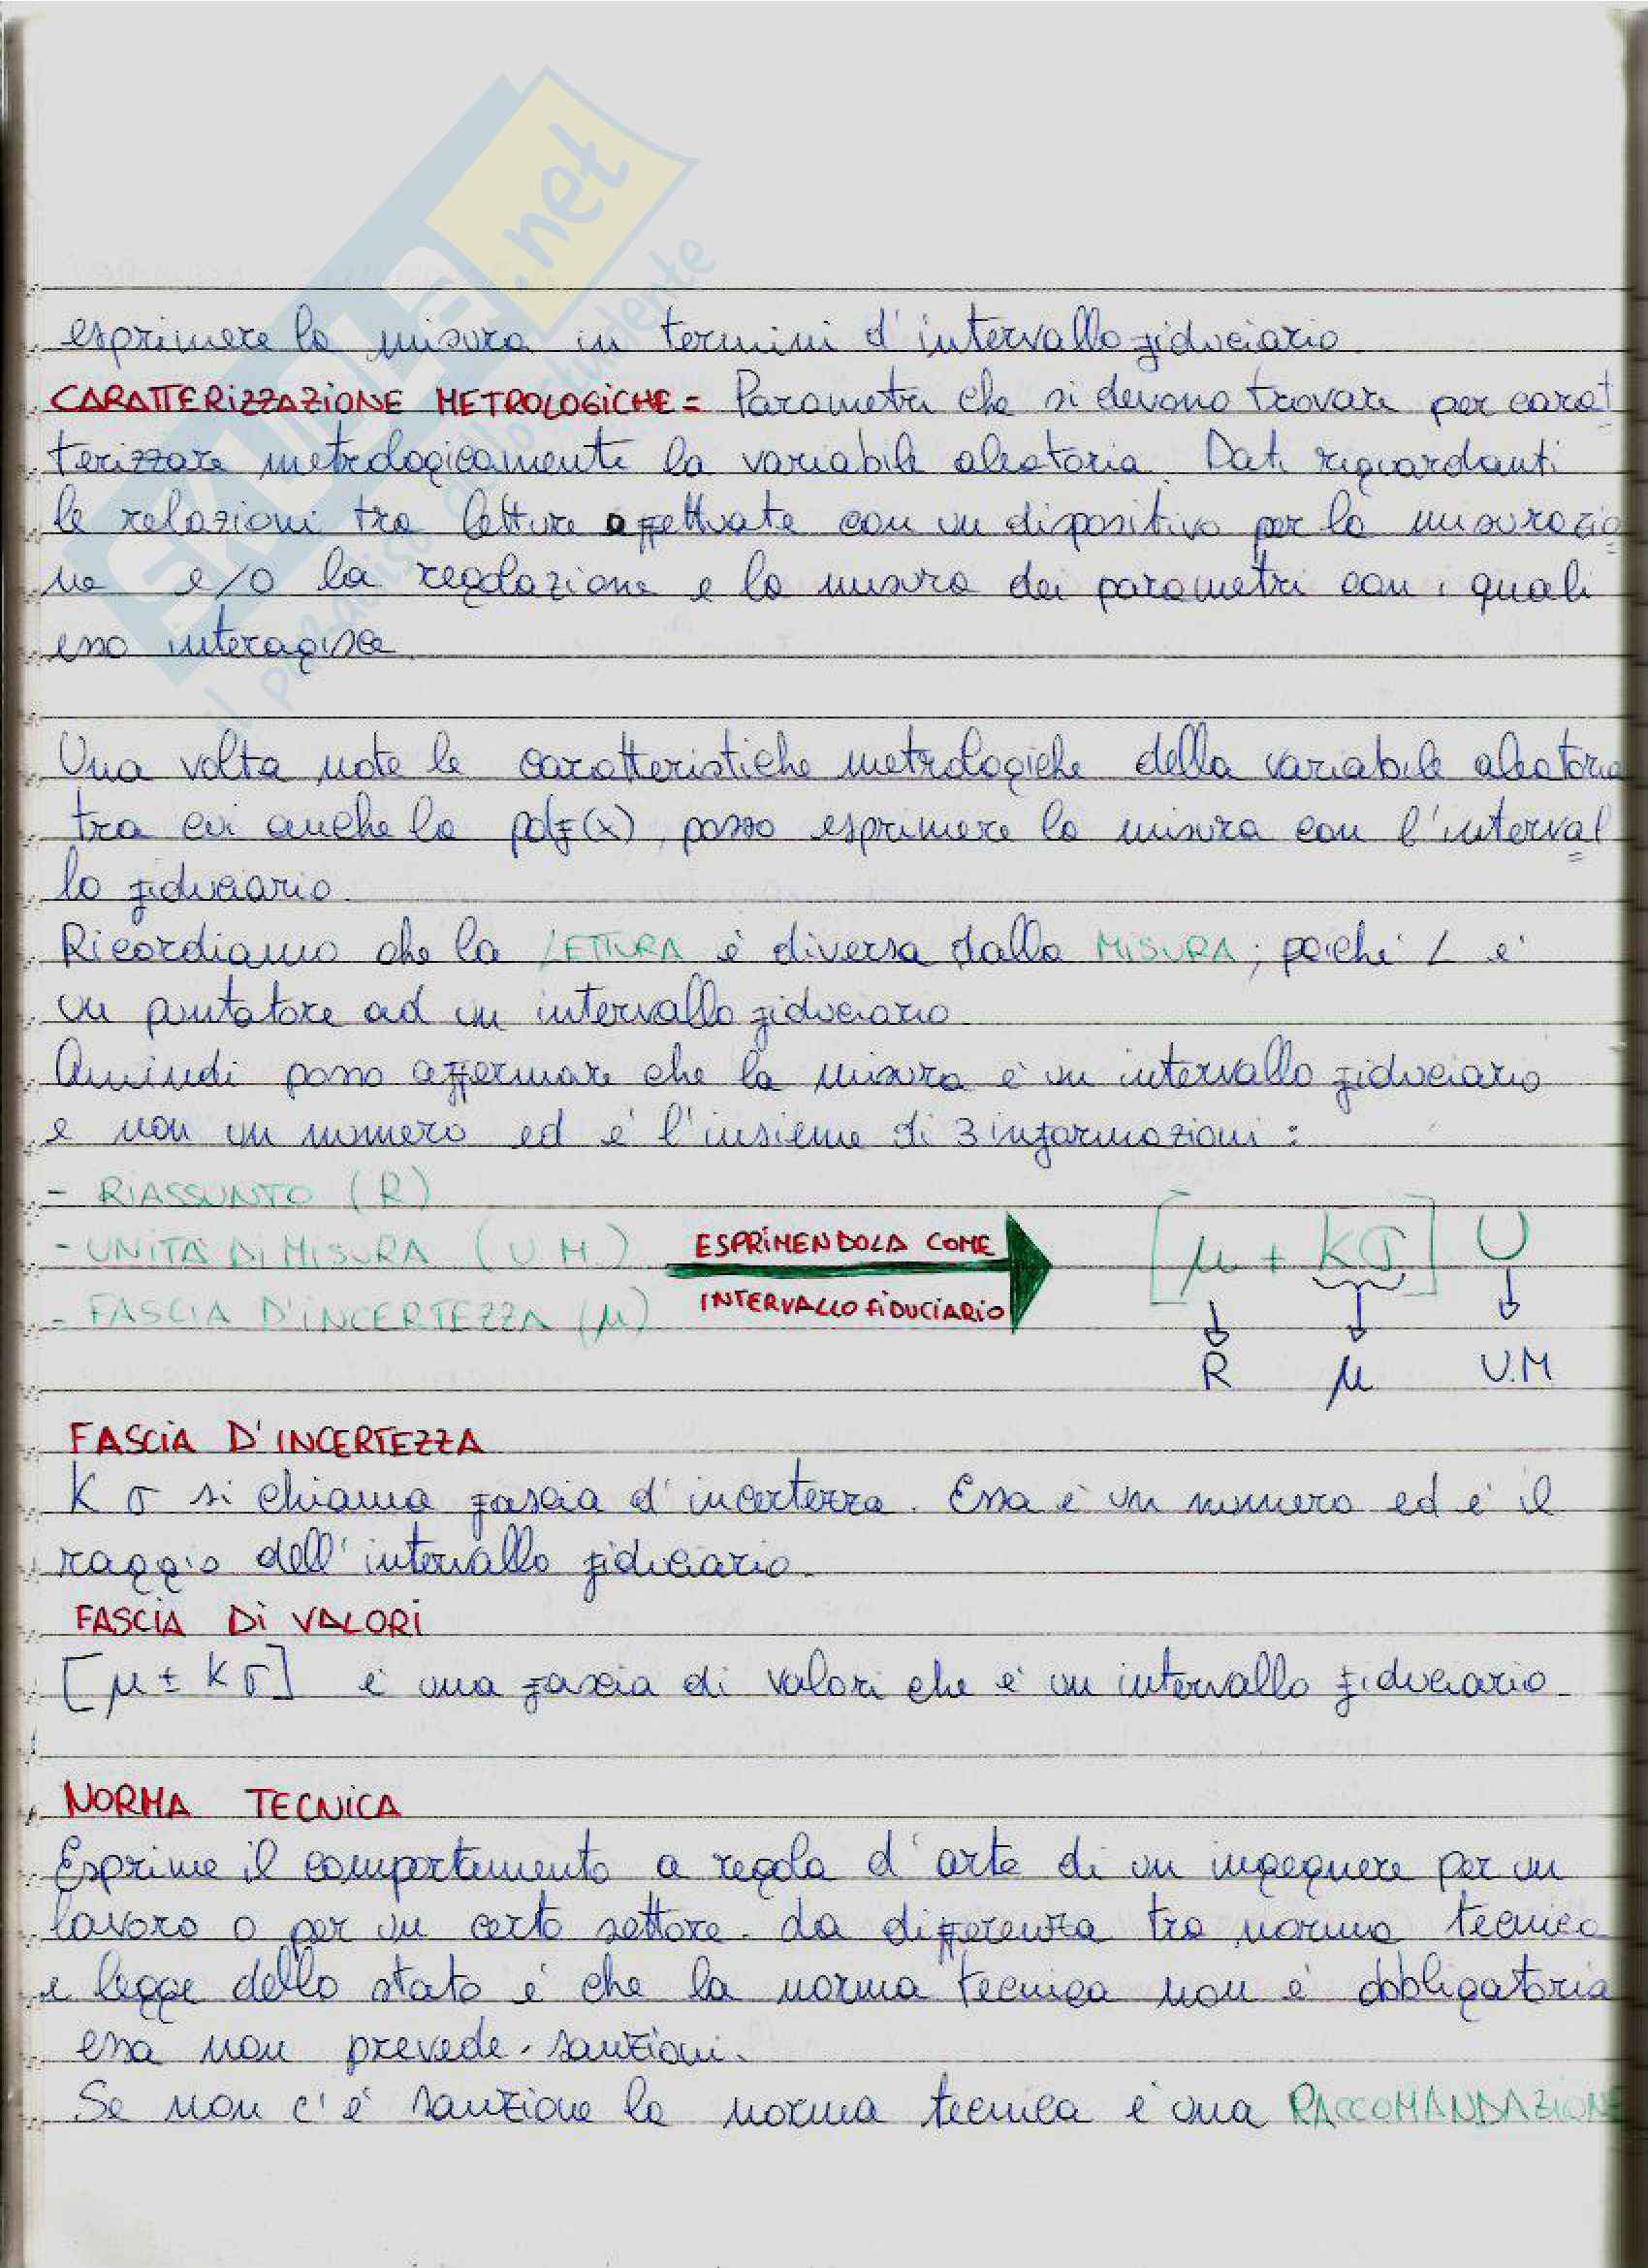 SKUOLA.net
il paradiso dello studente
esprimere la misura in termini d'intervallo fiduciario.
CARATTERIZZAZIONE METROLOGICHE = Parametri che si devono trovare per carat
terizzare metrologicamente la variabile aleatoria. Dati riguardanti
le relazioni tra letture effettuate con un dispositivo per la misurazio
ne e/o la regolazione e la misura dei parametri con i quali
esso interagisce.
Una volta note le caratteristiche metrologiche della variabile aleatoria
tra cui anche la pdf(x), posso esprimere la misura con l'interval
lo fiduciario.
Ricordiamo che la LETTURA è diversa dalla MISURA; poiché L è
un puntatore ad un intervallo fiduciario.
Quindi posso affermare che la misura è un intervallo fiduciario
e non un numero ed è l'insieme di 3 informazioni:
- RIASSUNTO (R)
- UNITÀ DI MISURA (U.M)
- FASCIA D'INCERTEZZA (μ)
ESPRIMENDOLA COME
INTERVALLO FIDUCIARIO
[μ + kσ] U
R μ U.M
FASCIA D'INCERTEZZA
K σ si chiama fascia d'incertezza. Essa è un numero ed è il
raggio dell'intervallo fiduciario.
FASCIA DI VALORI
[μ ± kσ] è una fascia di valori che è un intervallo fiduciario.
NORMA TECNICA
Esprime il comportamento a regola d'arte di un ingegnere per un
lavoro o per un certo settore. La differenza tra norma tecnica
e legge dello stato è che la norma tecnica non è obbligatoria
essa non prevede sanzioni.
Se non c'è sanzione la norma tecnica è una RACCOMANDAZIONE